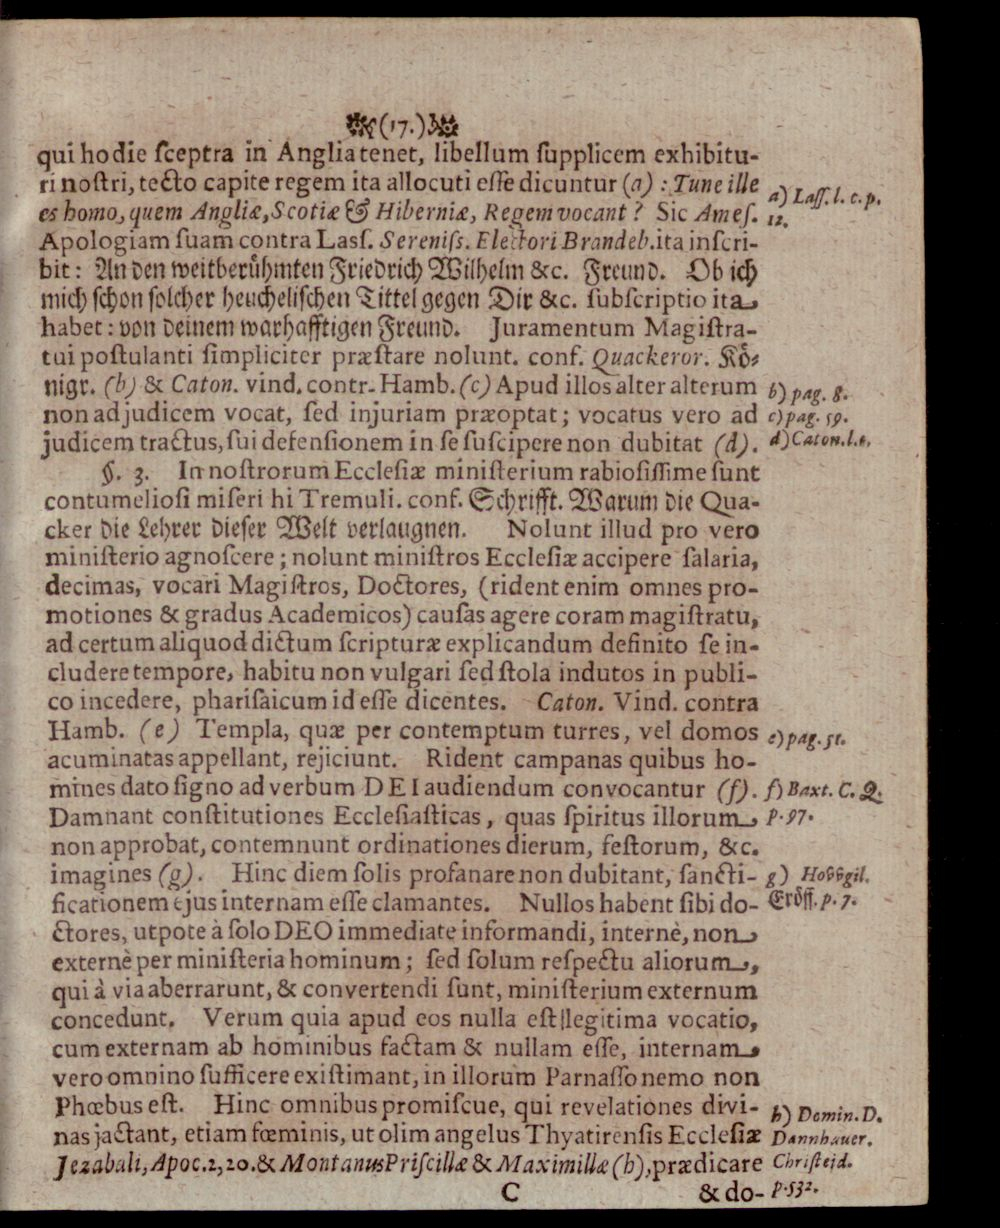 (17.)
qui hodie ſceptra in Anglia tenet, libellum ſupplicem exhibitu-
ri noſtri, tecto capite regem ita allocuti eſſe dicuntur (a) : Tune ille
es homo, quem Angliæ, Scotiæ & Hiberniæ, Regem vocant? Sic Ameſ.
Apologiam ſuam contra Lasſ. Sereniſs. Electori Brandeb. ita inſcri-
bit: An den weitberühmten Friedrich Wilhelm &c. Freund. Ob ich
mich ſchon ſolcher heuchelischen Tittel gegen Dir &c. ſubſcriptio ita
habet: von deinem warhafftigen Freund. Juramentum Magiſtra-
tui poſtulanti ſimpliciter præſtare nolunt. conf. Quackeror. Kö-
nigr. (b) & Caton. vind. contr. Hamb. (c) Apud illos alter alterum
non ad judicem vocat, ſed injuriam præoptat; vocatus vero ad
judicem tractus, ſui defenſionem in ſe ſuſcipere non dubitat (d).
§. 3. In noſtrorum Eccleſiæ miniſterium rabioſiſſime ſunt
contumelioſi miſeri hi Tremuli. conf. Schrifft. Warum die Qua-
cker die Lehrer dieſer Welt verlaugnen. Nolunt illud pro vero
miniſterio agnoſcere; nolunt miniſtros Eccleſiæ accipere ſalaria,
decimas, vocari Magiſtros, Doctores, (rident enim omnes pro-
motiones & gradus Academicos) cauſas agere coram magiſtratu,
ad certum aliquod dictum ſcripturæ explicandum definito ſe in-
cludere tempore, habitu non vulgari ſed ſtola indutos in publi-
co incedere, phariſaicum id eſſe dicentes. Caton. Vind. contra
Hamb. (e) Templa, quæ per contemptum turres, vel domos
acuminatas appellant, rejiciunt. Rident campanas quibus ho-
mines dato ſigno ad verbum DEI audiendum convocantur (f).
Damnant conſtitutiones Eccleſiaſticas, quas ſpiritus illorum
non approbat, contemnunt ordinationes dierum, feſtorum, &c.
imagines (g). Hinc diem ſolis profanare non dubitant, ſancti-
ficationem ejus internam eſſe clamantes. Nullos habent ſibi do-
ctores, utpote à ſolo DEO immediate informandi, internè, non
externè per miniſteria hominum; ſed ſolum reſpectu aliorum,
qui à via aberrarunt, & convertendi ſunt, miniſterium externum
concedunt. Verum quia apud eos nulla eſt legitima vocatio,
cum externam ab hominibus factam & nullam eſſe, internam
vero omnino ſufficere exiſtimant, in illorum Parnaſſo nemo non
Phœbus eſt. Hinc omnibus promiſcue, qui revelationes divi-
nas jactant, etiam fœminis, ut olim angelus Thyatirenſis Eccleſiæ
Jezabali, Apoc. 2, 20. & Montanus Priſcillæ & Maximillæ (h), prædicare
C & do-
a) Laſſ. l. c. p.
12.
b) pag. 8.
c) pag. 59.
d) Caton. l. c.
e) pag. 51.
f) Baxt. C. Q.
p. 97.
g) Hobbgil.
Eröff. p. 7.
h) Domin. D.
Dannhauer.
Chriſteid.
p. 532.